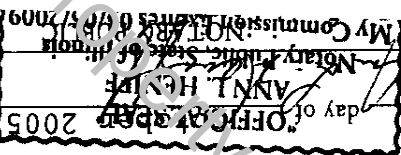 day of 2005
"OFFICIAL SEAL"
ANN L
Notary Public, State of Illinois
NOTARY PUBLIC
My Commission Expires 07/05/2009